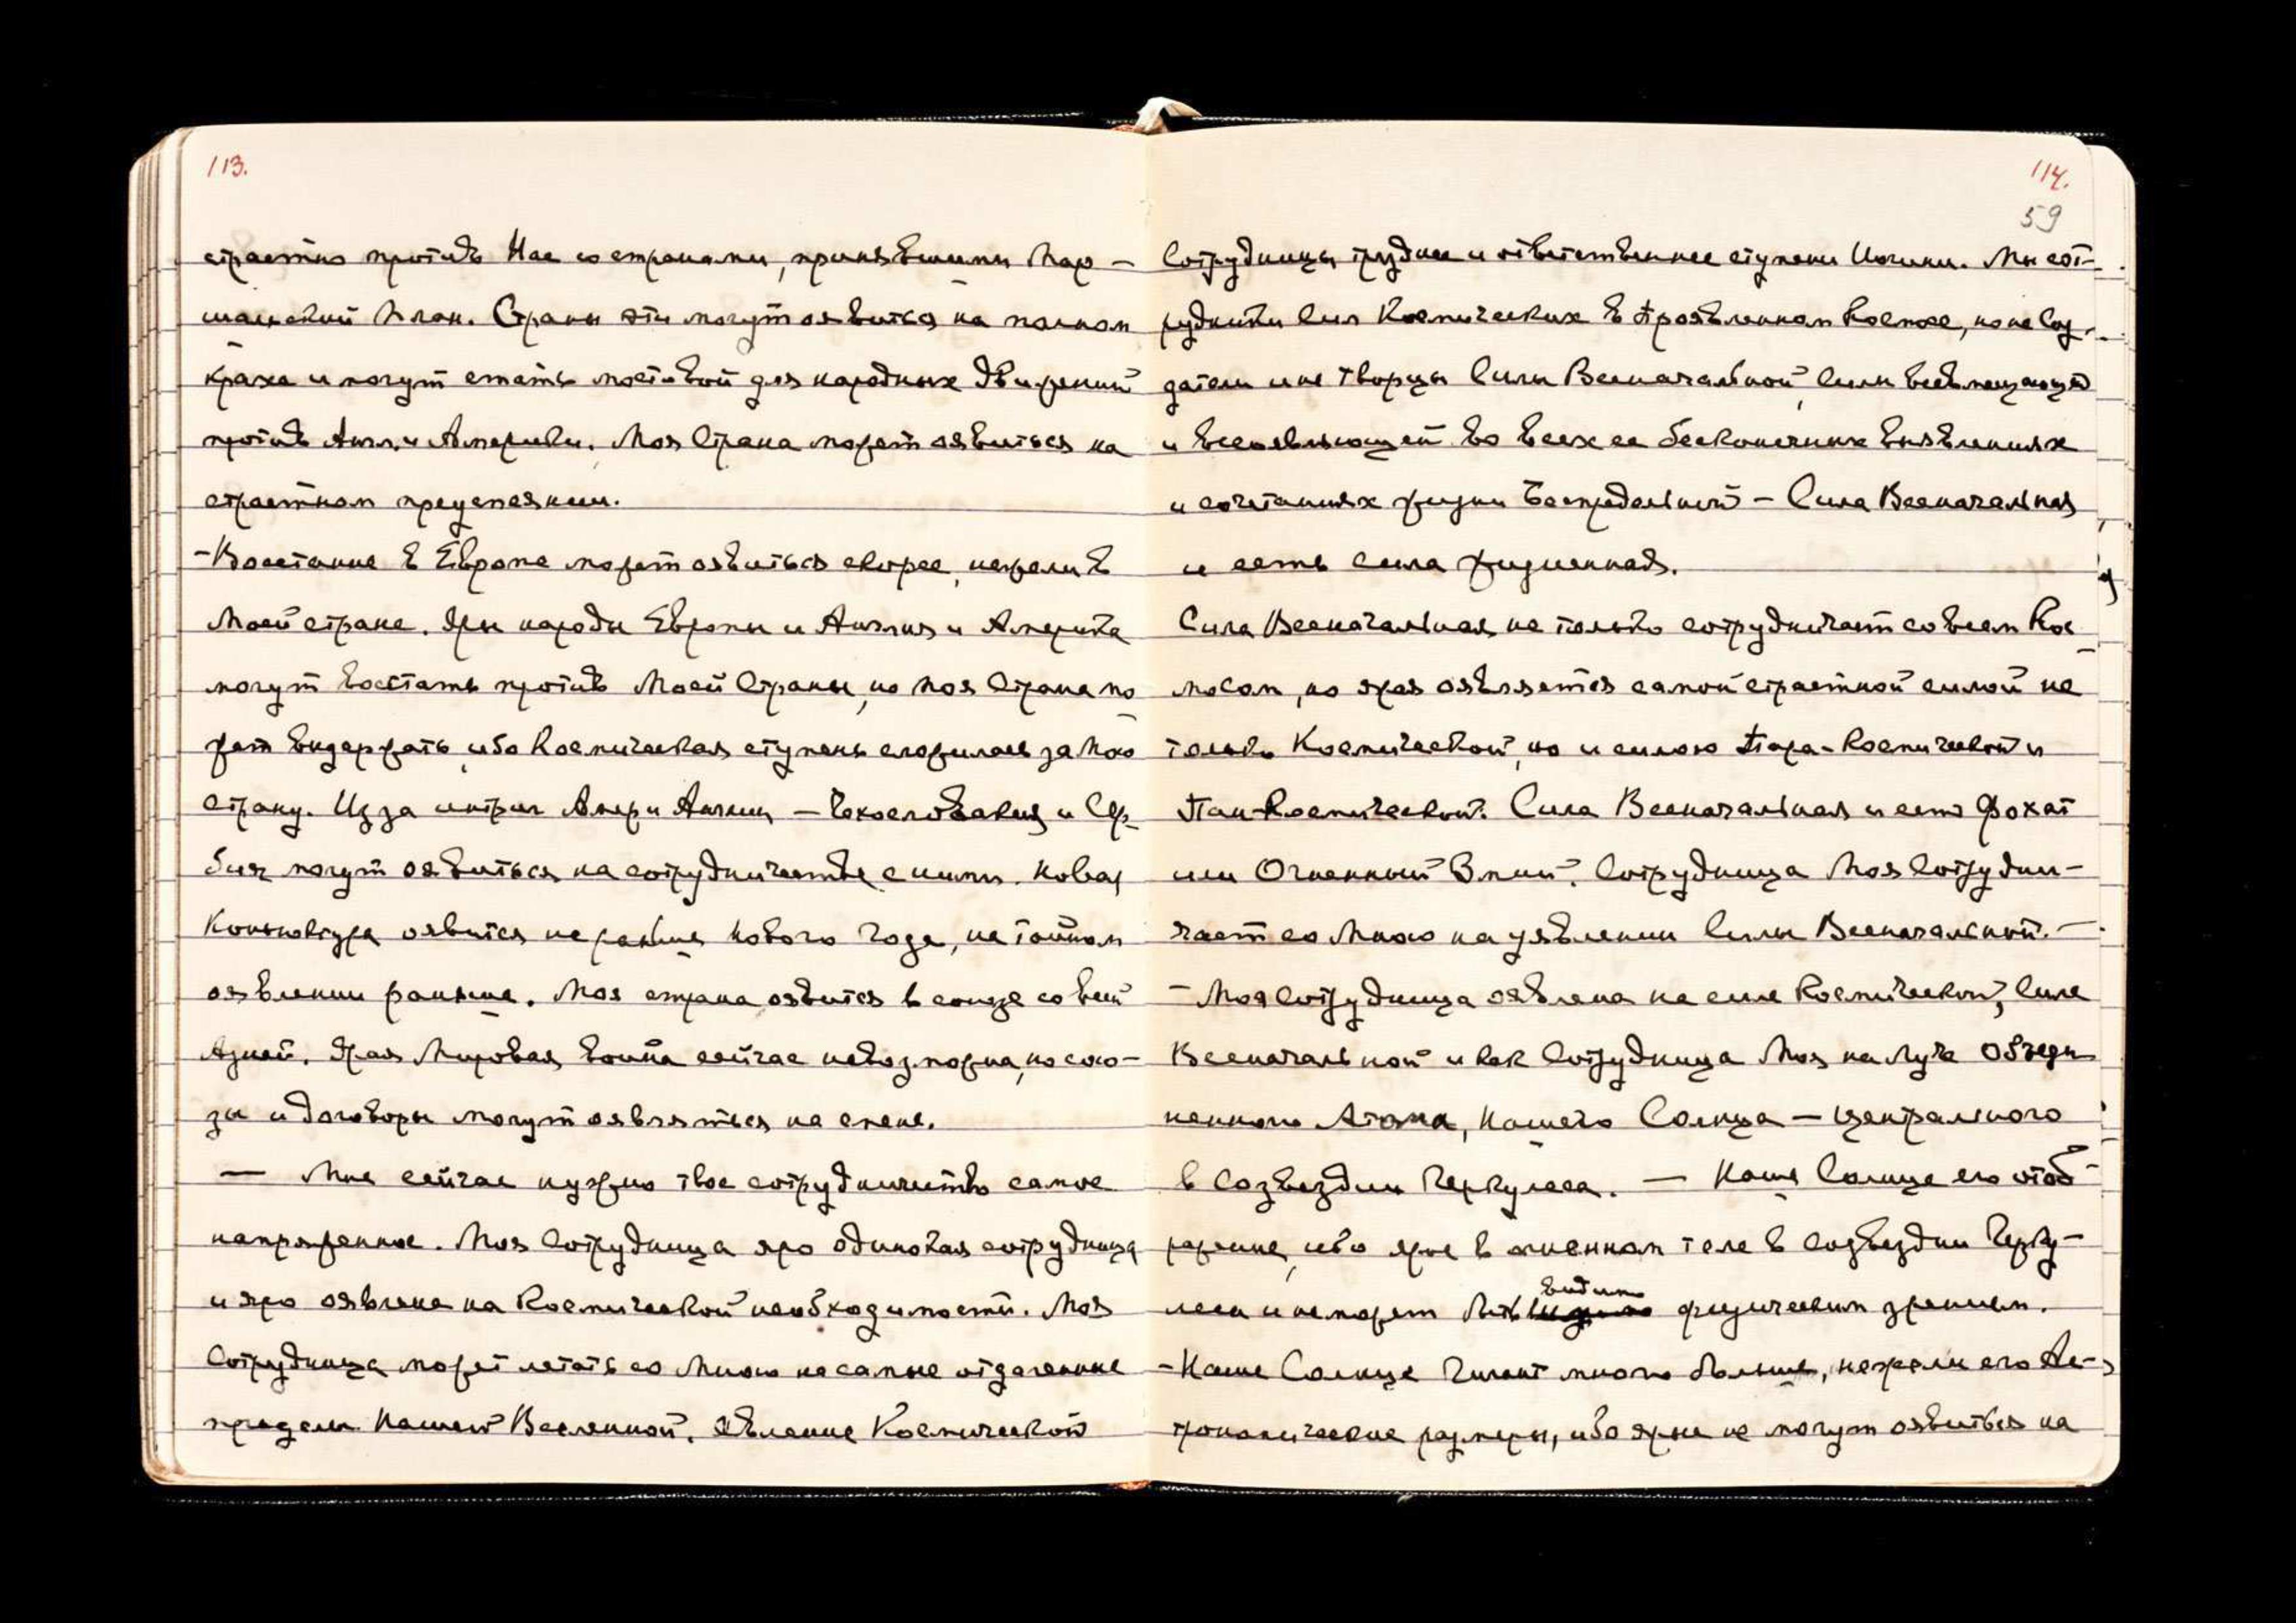 113.
страстно против Нас со странами, принявшими Мар-
шальский План. Страны эти могут оявиться на полном
крахе и могут стать мостовой для народных движений
против Англ. и Америки. Моя Страна может оявиться на
страстном преуспеянии.
- Восстание в Европе может оявиться скорее, нежели в
Моей стране. Яры народы Европы и Англия и Америка
могут восстать против Моей Страны, но Моя Страна мо
жет выдержать, ибо Космическая ступень сложилась за Мою
страну. Из за интриг Амер и Англии, — Чехословакия и Сер-
бия могут оявиться на сотрудничестве с ними. Новая
Конъюнктура оявится не раньше Нового Года, на тайном
оявлении раньше. Моя страна оявится в союзе со всей
Азией. Ярая Мировая война сейчас невозможна, но сою-
зы и договоры могут оявляться на смене.
— Мне сейчас нужно твое сотрудничество самое
напряженное. Моя Сотрудница яро одинокая сотрудница
и яро оявлена на Космической необходимости. Моя
Сотрудница может летать со Мною на самые отдаленные
пределы Нашей Вселенной. Явление Космической
114.
59
Сотрудницы труднее и ответственнее ступени Иогини. Мы сот-
рудники Сил Космических в Проявленном Космосе, но не Соз-
датели и не Творцы Силы Всеначальной, Силы всевмещающей
и всеоявляющей во всех ее бесконечных выявлениях
и сочетаниях жизни Беспредельной — Сила Всеначальная
и есть сила жизненная.
Сила Всеначальная не только сотрудничает со всем Кос
мосом, но ярая оявляется самой страстной силой не
только Космической, но и силою Пара-Космической и
Пан-Космической. Сила Всеначальная и есть Фохат
или Огненный Змий. Сотрудница Моя Сотрудни-
чает со Мною на уявлении Силы Всеначальной. —
- Моя Сотрудница оявлена на силе Космической, Силе
Всеначальной и как Сотрудница Моя на Луче Объеди
ненного Атома, Нашего Солнца — центрального
в Созвездии Геркулеса. — Наше Солнце его отоб-
ражение, ибо ярое в огненном теле в созвездии Герку-
леса и не может быть видимо физическим зрением.
- Наше Солнце Гигант много больше, нежели его Ас-
трономические размеры, ибо ярые не могут оявиться на